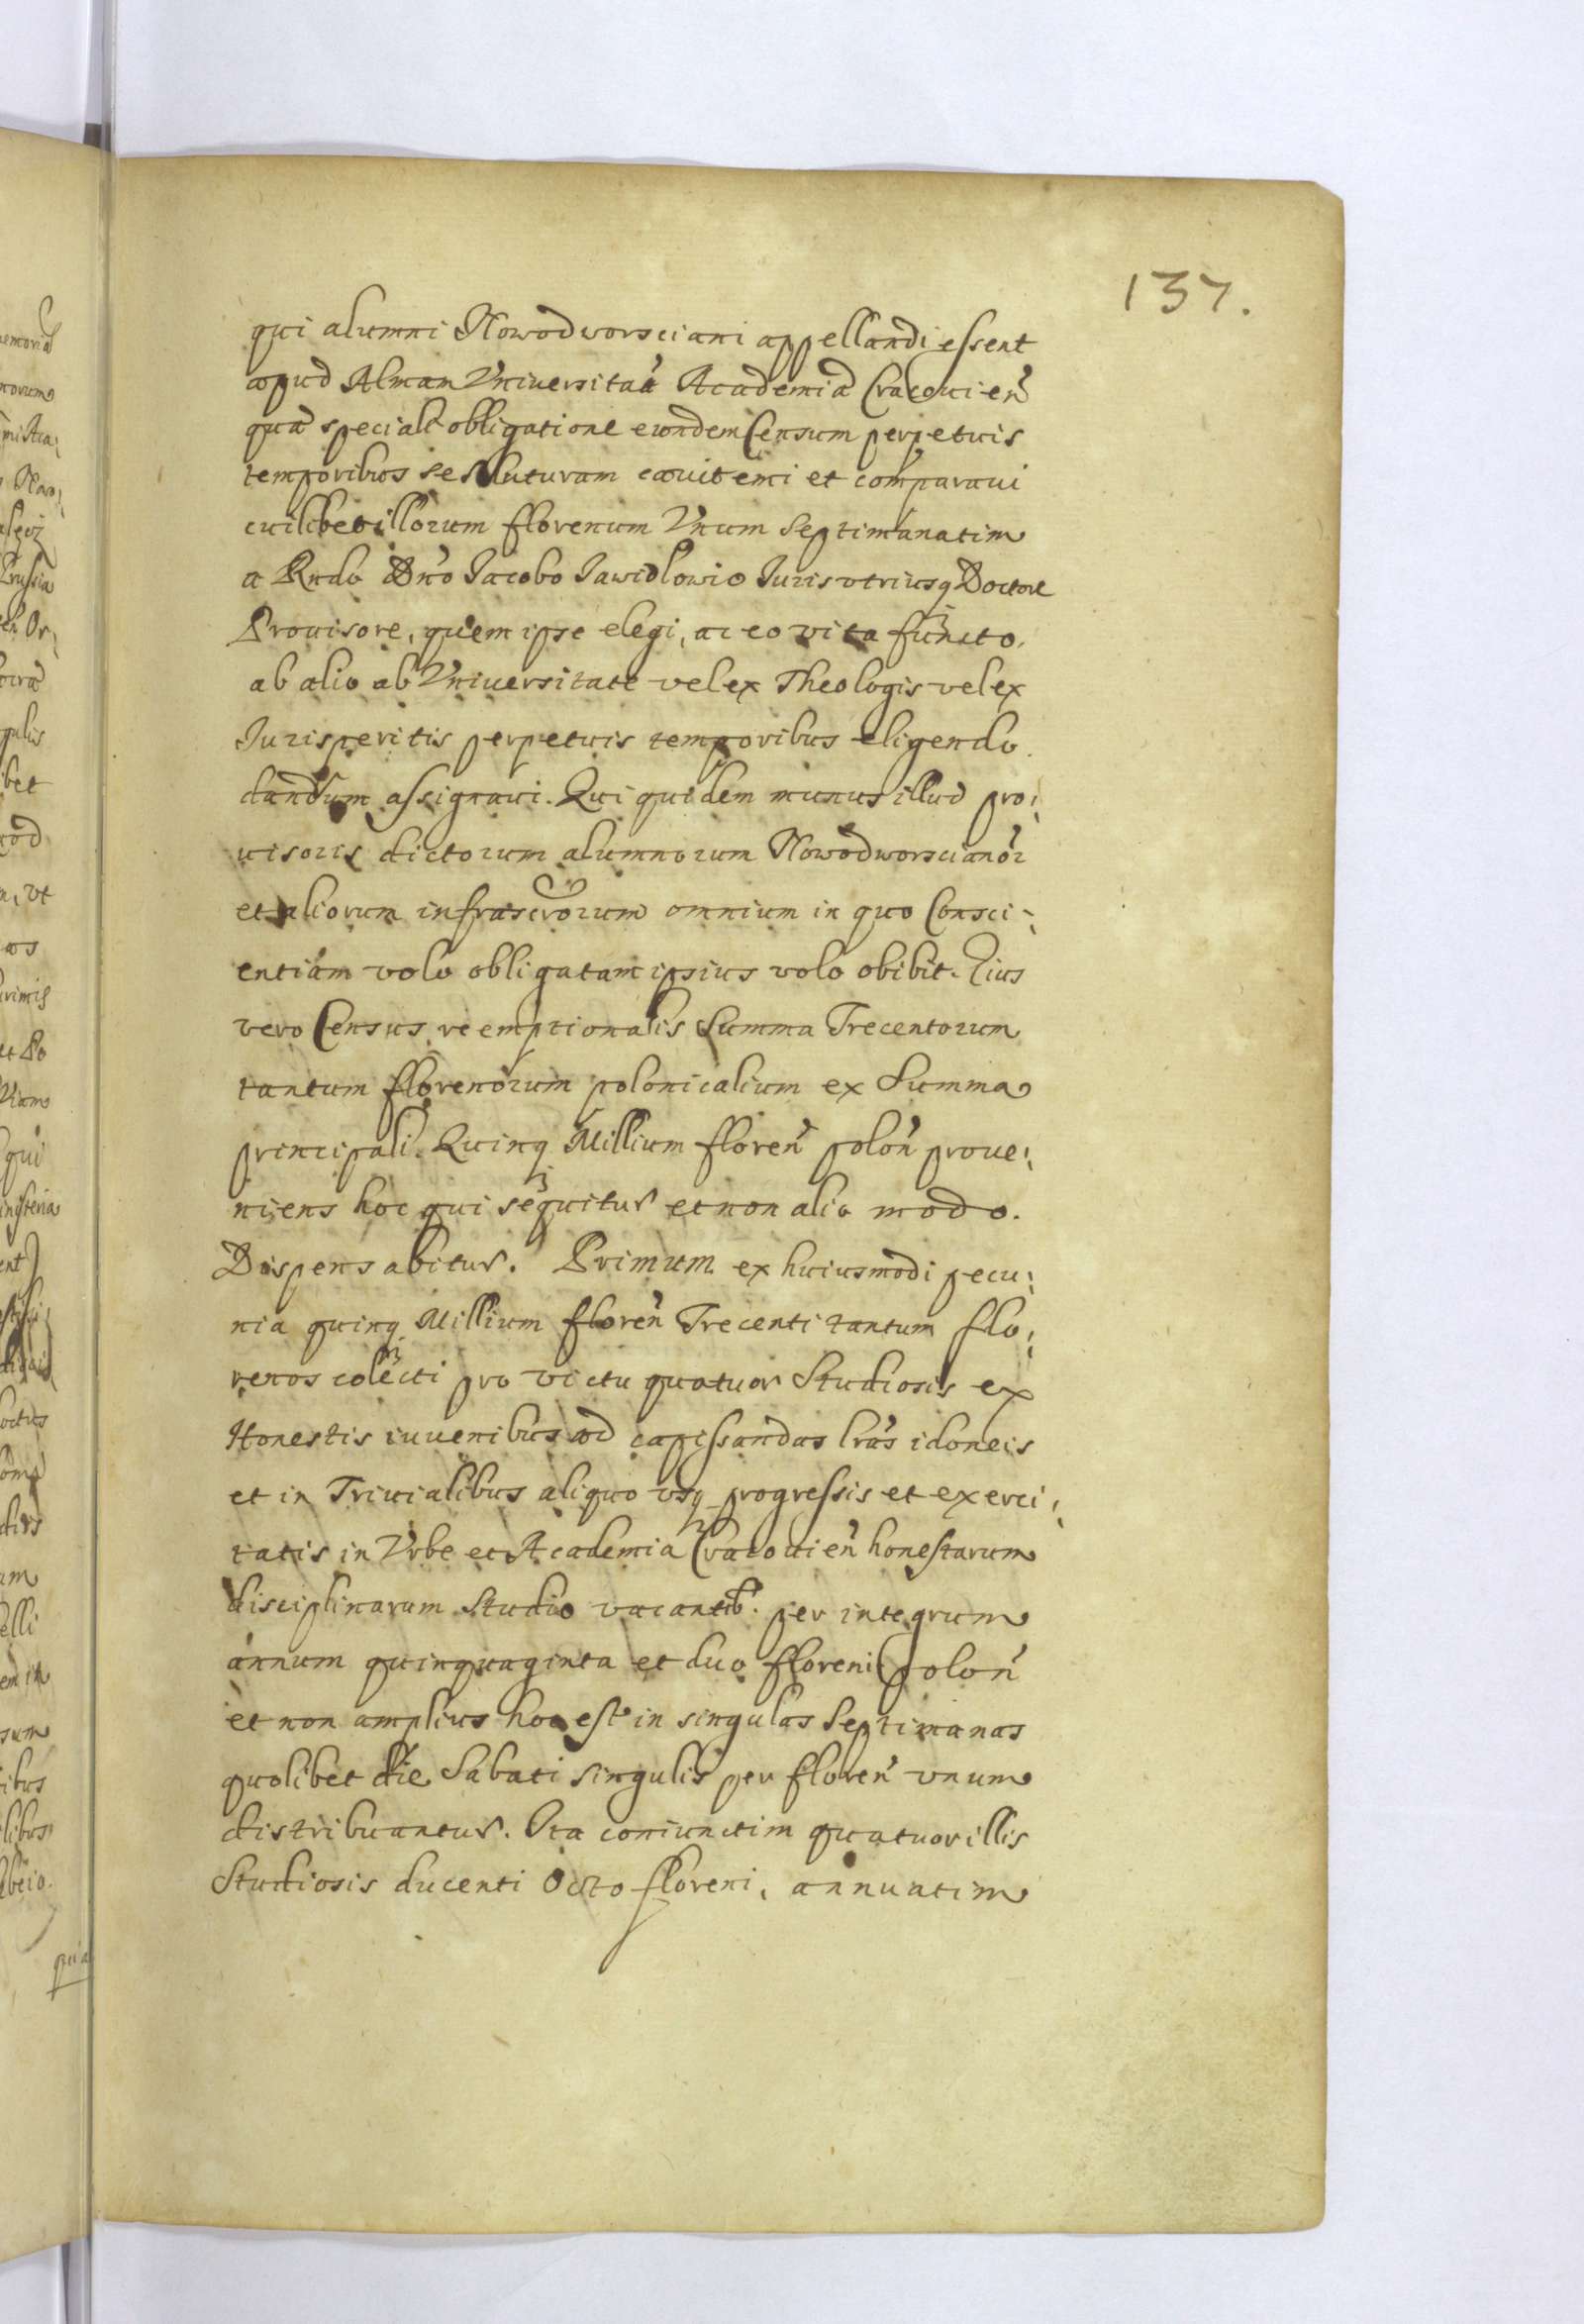 137.
qui alumni Nowodworsciani appellandi essent
apud Almam Vniversitaẽ Academiã Cracouieñ
quã speciali obligatione eundem Censum perpetuis
temporibus se soluturam cauit emi et comparaui
cuilibet illorum florenum Vnum Septimanatim
a Rndo Dño Jacobo Jawidlowio Juris vtriusq Doctore
Prouisore, quem ipse elegi, ac eo vita functo,
ab alio ab Vniuersitate vel ex Theologis vel ex
Jurisperitis perpetuis temporibus eligendo
dandum assignaui. Qui quidem munus illud pro:
uisoris dictorum alumnorum Nowodworscianor
et aliorum infrascrorum omnium in quo Consci:
entiam volo obligatam ipsius volo obibit. Eius
vero Census reemptionalis Summa Trecentorum
tantum florenorum polonicalium ex Summa
principali Quinq Millium floreñ poloñ proue:
niens hoc qui sequitur et non alio modo.
Dispensabitur. Primum ex huiusmodi pecu:
nia quinq Millium floreñ Trecenti tantum flo:
renos colecti pro victu quatuor Studiosis ex
Honestis iuuenibus ad capissandas lras idoneis
et in Triuialibus aliquo vsq progressis et exerci:
tatis in Vrbe et Academia Cracouieñ honestarum
disciplinarum Studio vacantib. per integrum
annum quinquaginta et duo floreni poloñ
et non amplius hoc est in singulas Septimanas
quolibet die Sabati singulis per floreñ vnum
distribuantur. Ita coniunctim quatuor illis
Studiosis ducenti Octo floreni, annuatim